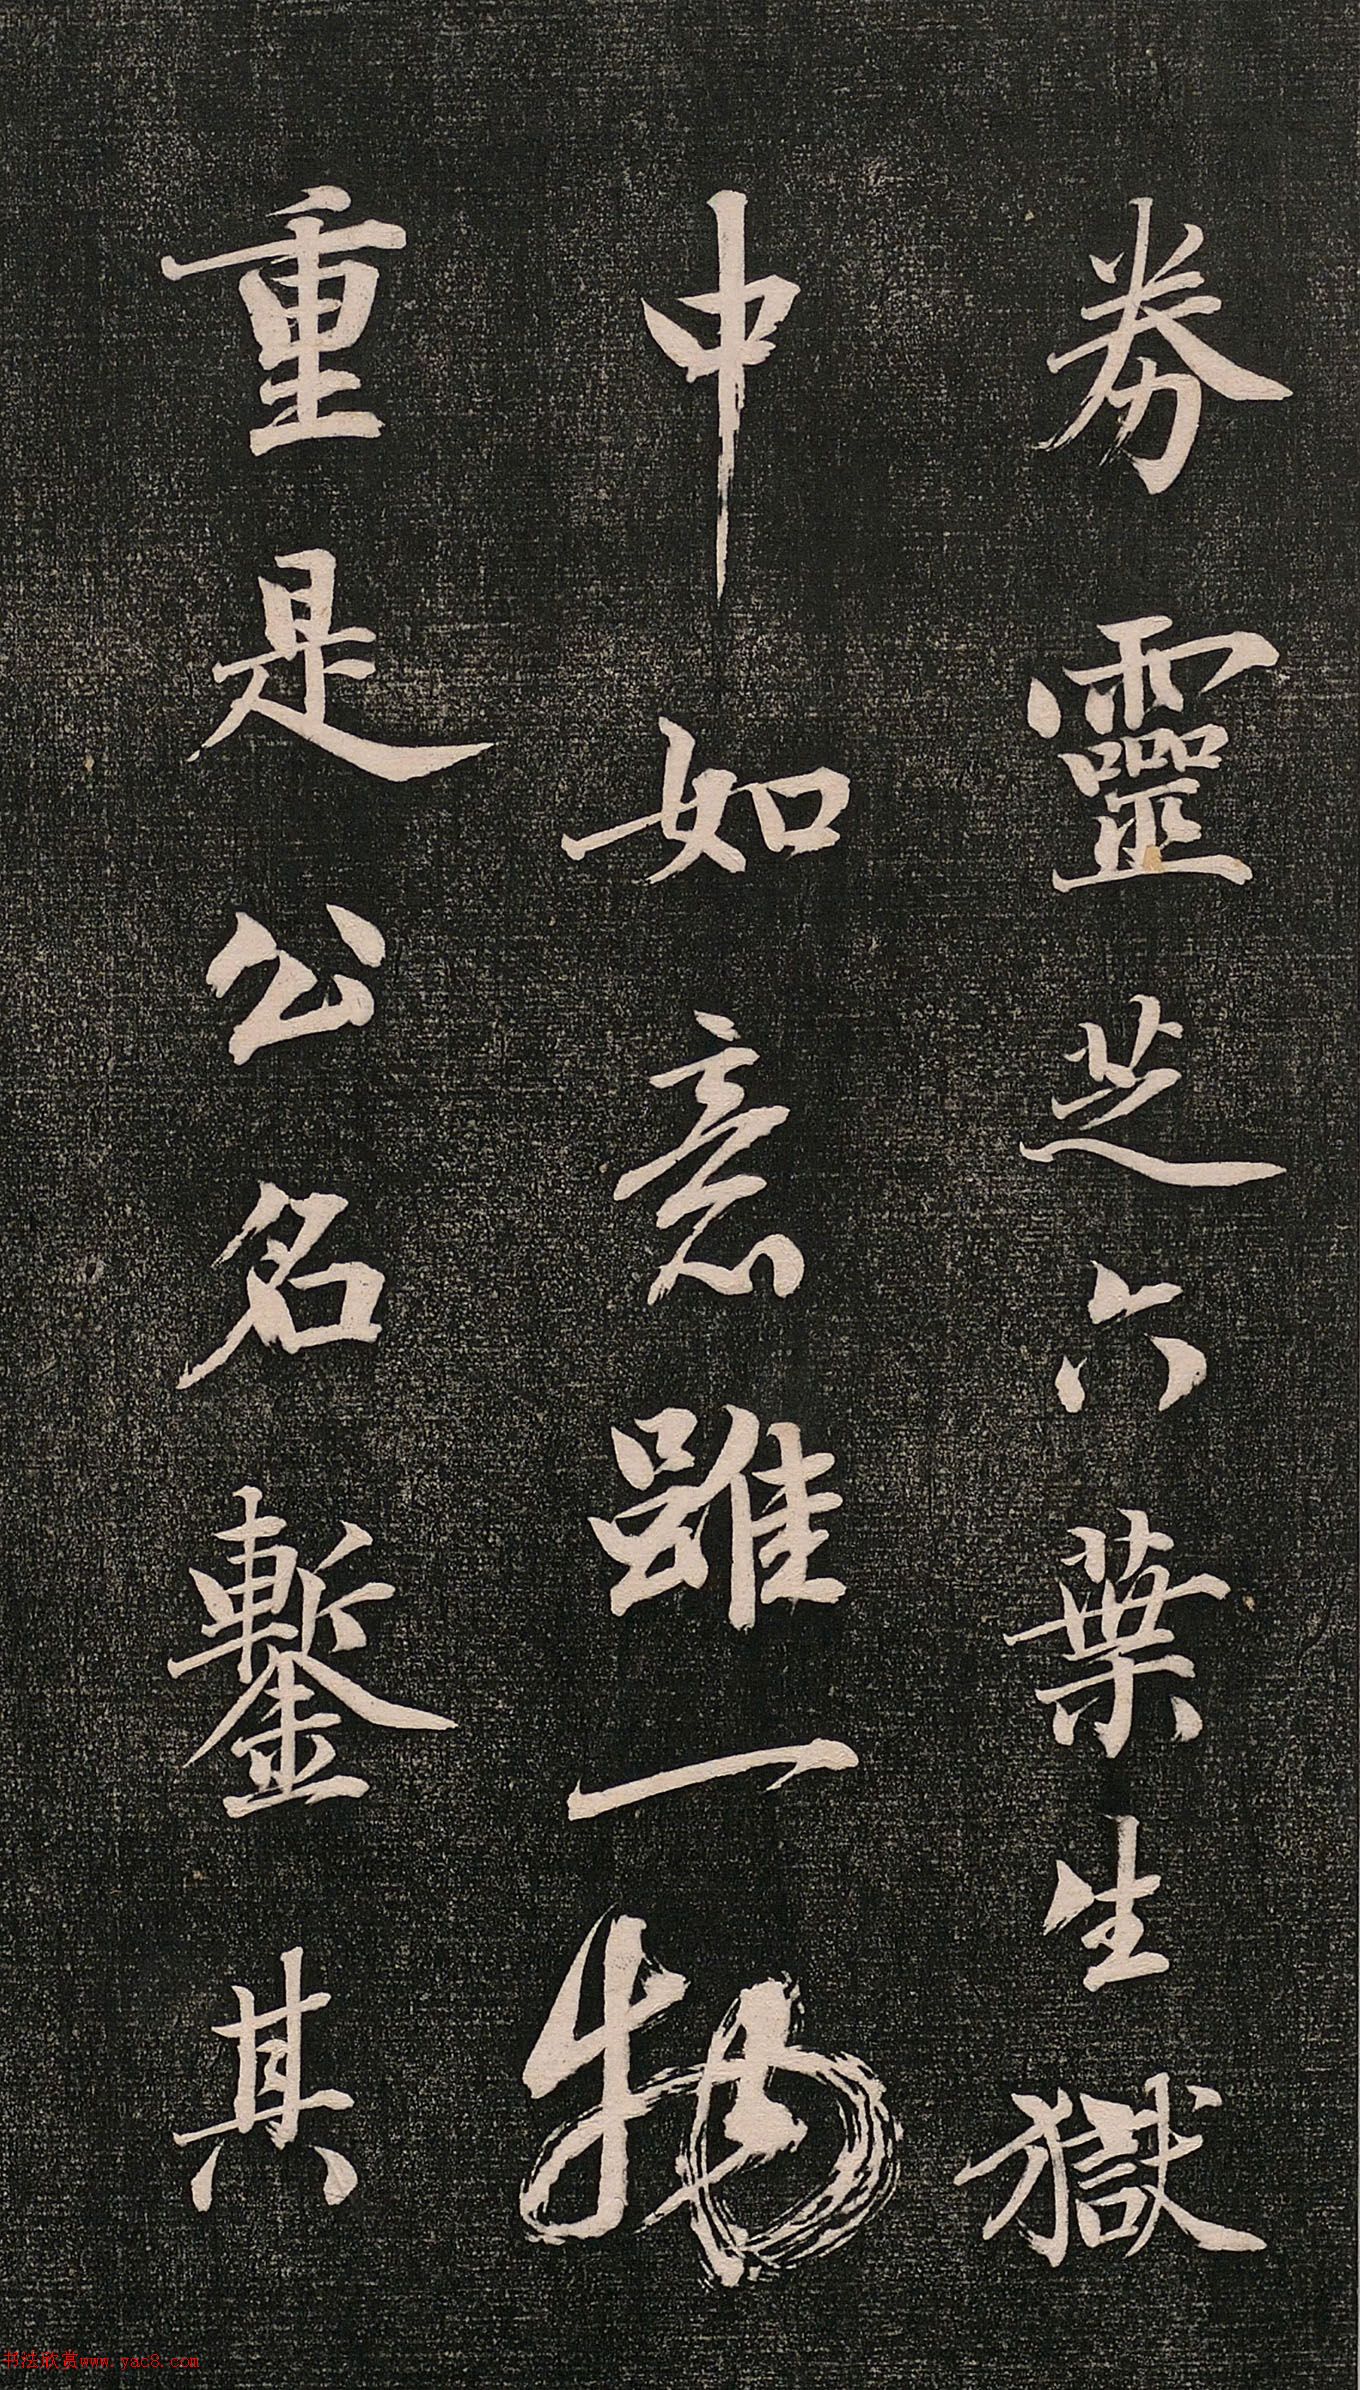 券靈芝六葉生獄
中如意雖一物
重是公名鏨其
书法欣赏www.yac8.com